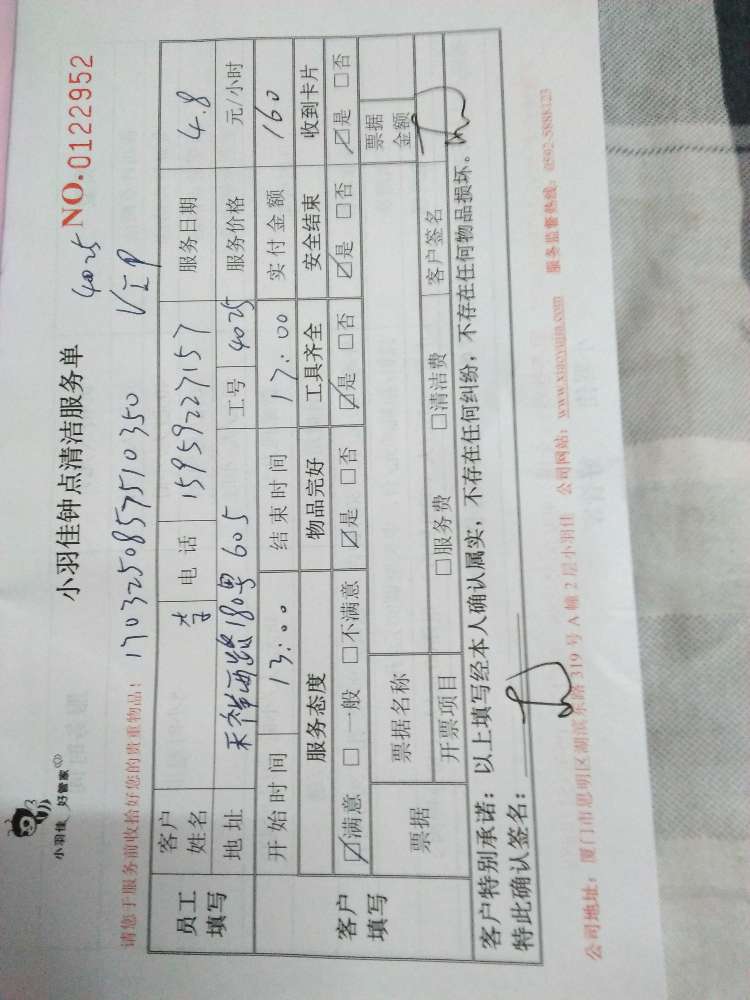 小羽佳 好管家
小羽佳钟点清洁服务单
4025
NO.0122952
请您于服务前收拾好您的贵重物品!
1703250857510350
VIP
员工填写
客户姓名
李
电话
15959227157
服务日期
4.8
地址
180号605
工号
4025
服务价格
元/小时
开始时间
13:00
结束时间
17:00
实付金额
160
客户填写
服务态度
物品完好
工具齐全
安全结束
收到卡片
☑满意 □一般 □不满意
☑是 □否
☑是 □否
☑是 □否
☑是 □否
票据
票据名称
票据金额
开票项目
□服务费
□清洁费
客户签名
客户特别承诺:以上填写经本人确认属实,不存在任何纠纷,不存在任何物品损坏。
特此确认签名:
公司地址:厦门市思明区湖滨东路319号A幢2层小羽佳 公司网站:www.xiaoyujia.com 服务监督热线:0592-5888123